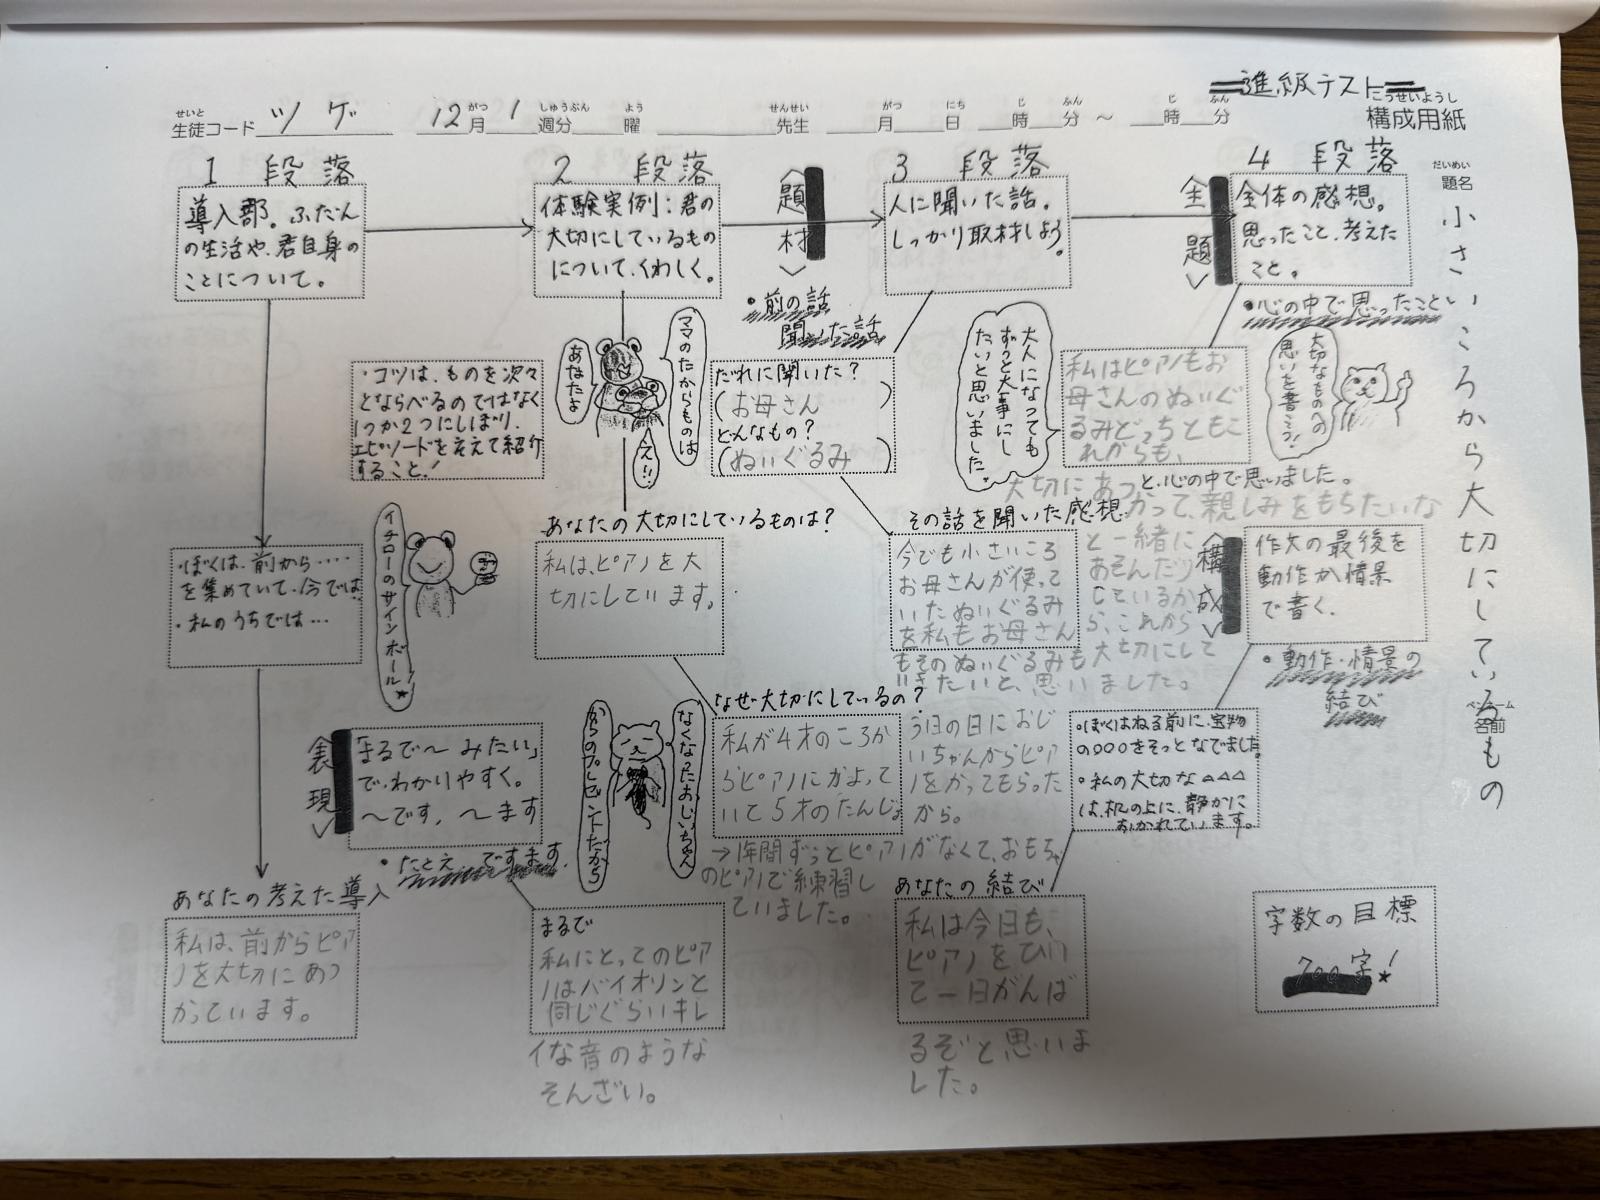 進級テスト
こうせいようし
構成用紙
せいと
生徒コード ツゲ
がつ しゅうぶん よう
12月 1週分 曜
せんせい
先生
がつ にち じ ふん じ ふん
月 日 時 分 〜 時 分
だいめい
題名
小さいころから大切にしているもの
ペンネーム
名前
1 段落
導入部。ふだん
の生活や、君自身の
ことについて。
・ぼくは、前から‥‥
を集めていて、今では
・私のうちでは…
あなたの考えた導入
私は、前からピア
ノを大切にあつ
かっています。
2 段落
体験実例:君の
大切にしているもの
について、くわしく。
・コツは、ものを次々
とならべるのではなく
1つか2つにしぼり、
エピソードをそえて紹介
すること!
ママのたからものは
あなたよ
え!!
イチローのサインボール★
あなたの大切にしているものは?
私は、ピアノを大
切にしています。
なぜ大切にしているの?
私が4才のころか
らピアノにかよって
いて5才のたんじょ
う日の日におじ
いちゃんからピア
ノをかってもらった
から。
→1年間ずっとピアノがなくて、おもちゃ
のピアノで練習し
ていました。
なくなったおじいちゃん
からのプレゼントだから
表現
「まるで〜みたい」
で、わかりやすく。
〜です、〜ます
・たとえ ですます
まるで
私にとってのピア
ノはバイオリンと
同じぐらいキレ
イな音のような
そんざい。
題材
・前の話
聞いた話
3 段落
人に聞いた話。
しっかり取材しよう。
だれに聞いた?
(お母さん)
どんなもの?
(ぬいぐるみ)
大人になっても
ずっと大事にし
たいと思いました。
その話を聞いた感想
今でも小さいころ
お母さんが使って
いたぬいぐるみ
を私もお母さん
と一緒に
あそんだり
しているか
ら、これから
もそのぬいぐるみも大切にして
いきたいと、思いました。
主題
4 段落
全体の感想。
思ったこと、考えた
こと。
・心の中で思ったこと
大切なものへの
思いを書こう!
私はピアノもお
母さんのぬいぐ
るみどっちともこ
れからも、
大切にあつかって、親しみをもちたいな
と、心の中で思いました。
構成
作文の最後を
動作か情景
で書く。
・動作・情景の
結び
・ぼくはねる前に、宝物
の○○○をそっとなでました。
・私の大切な△△△
は、机の上に、静かに
おかれています。
あなたの結び
私は今日も、
ピアノをひい
て一日がんば
るぞと思いま
した。
字数の目標
700字!★